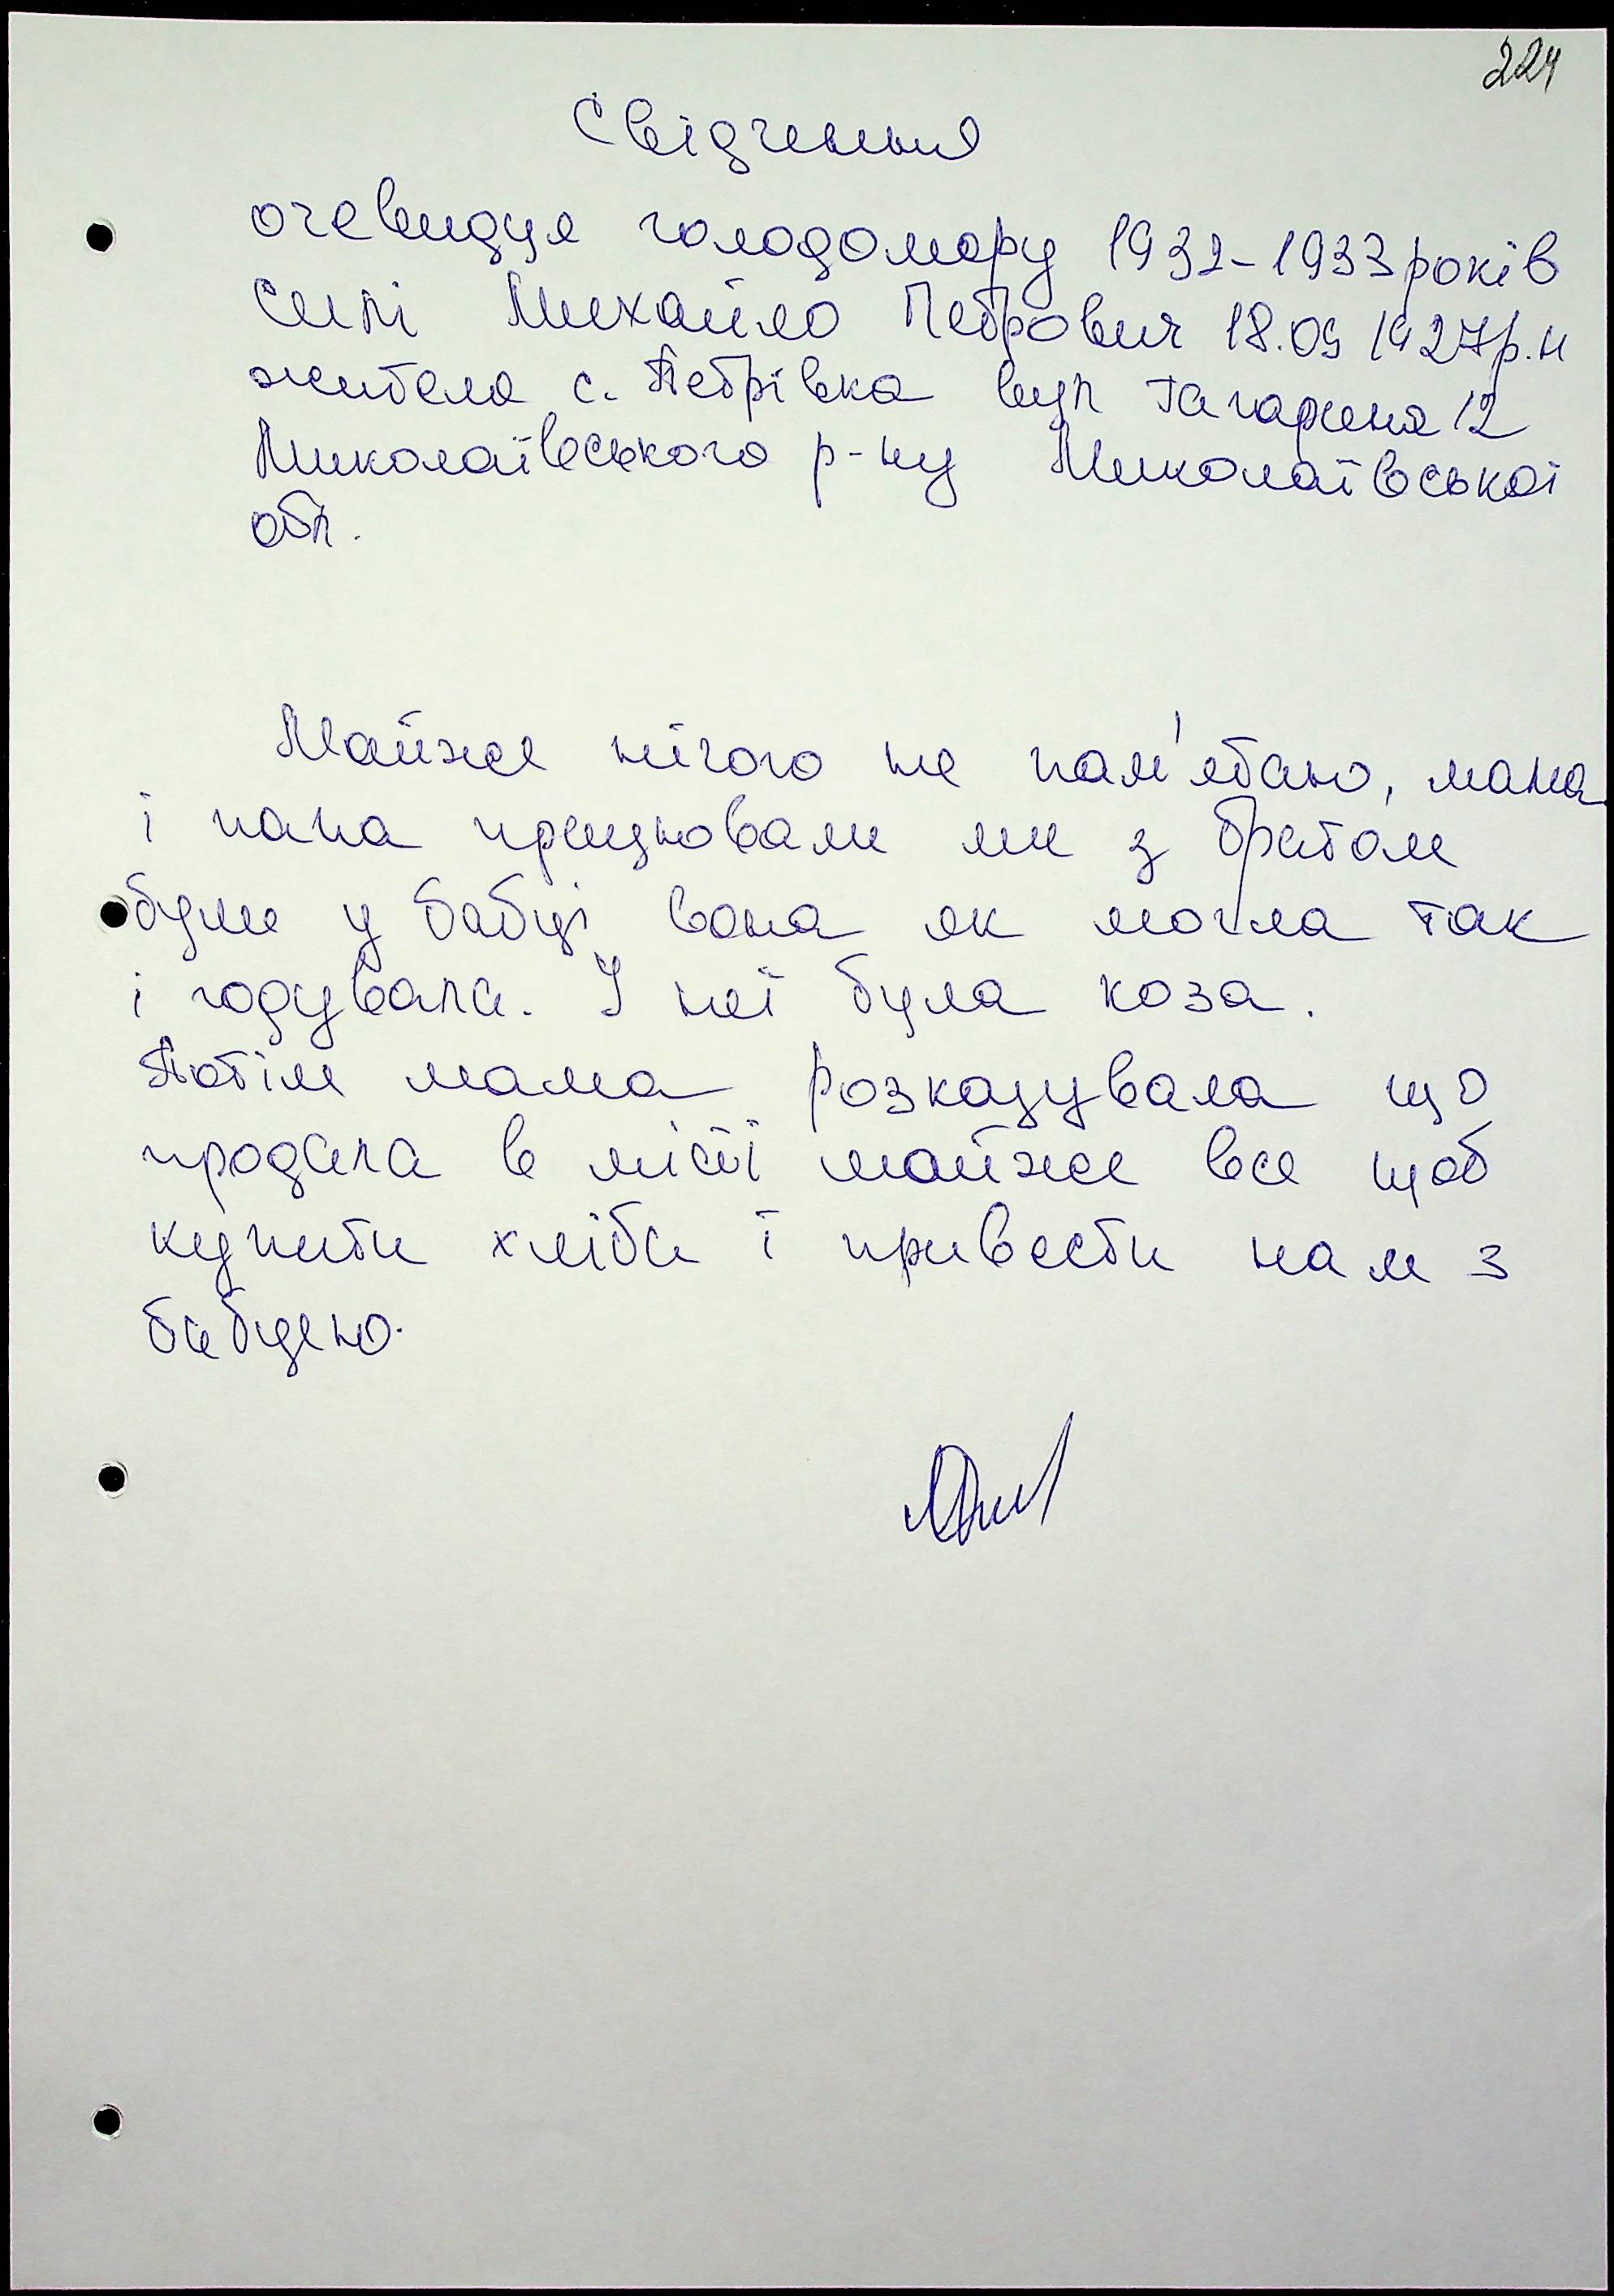 224
Свідчення
очевидця голодомору 1932-1933 років
Михайло Петрович 18.09 1927р.н
жителя с. Петрівка вул Гагаріна 12
Миколаївського р-ну Миколаївської
обл.
Майже нічого не пам'ятаю, мама
і папа працювали ми з братом
були у бабці вона як могла так
і годувала. У неї була коза.
Потім мама розказувала що
продала в місті майже все щоб
купити хліба і привести нам з
бабцею.